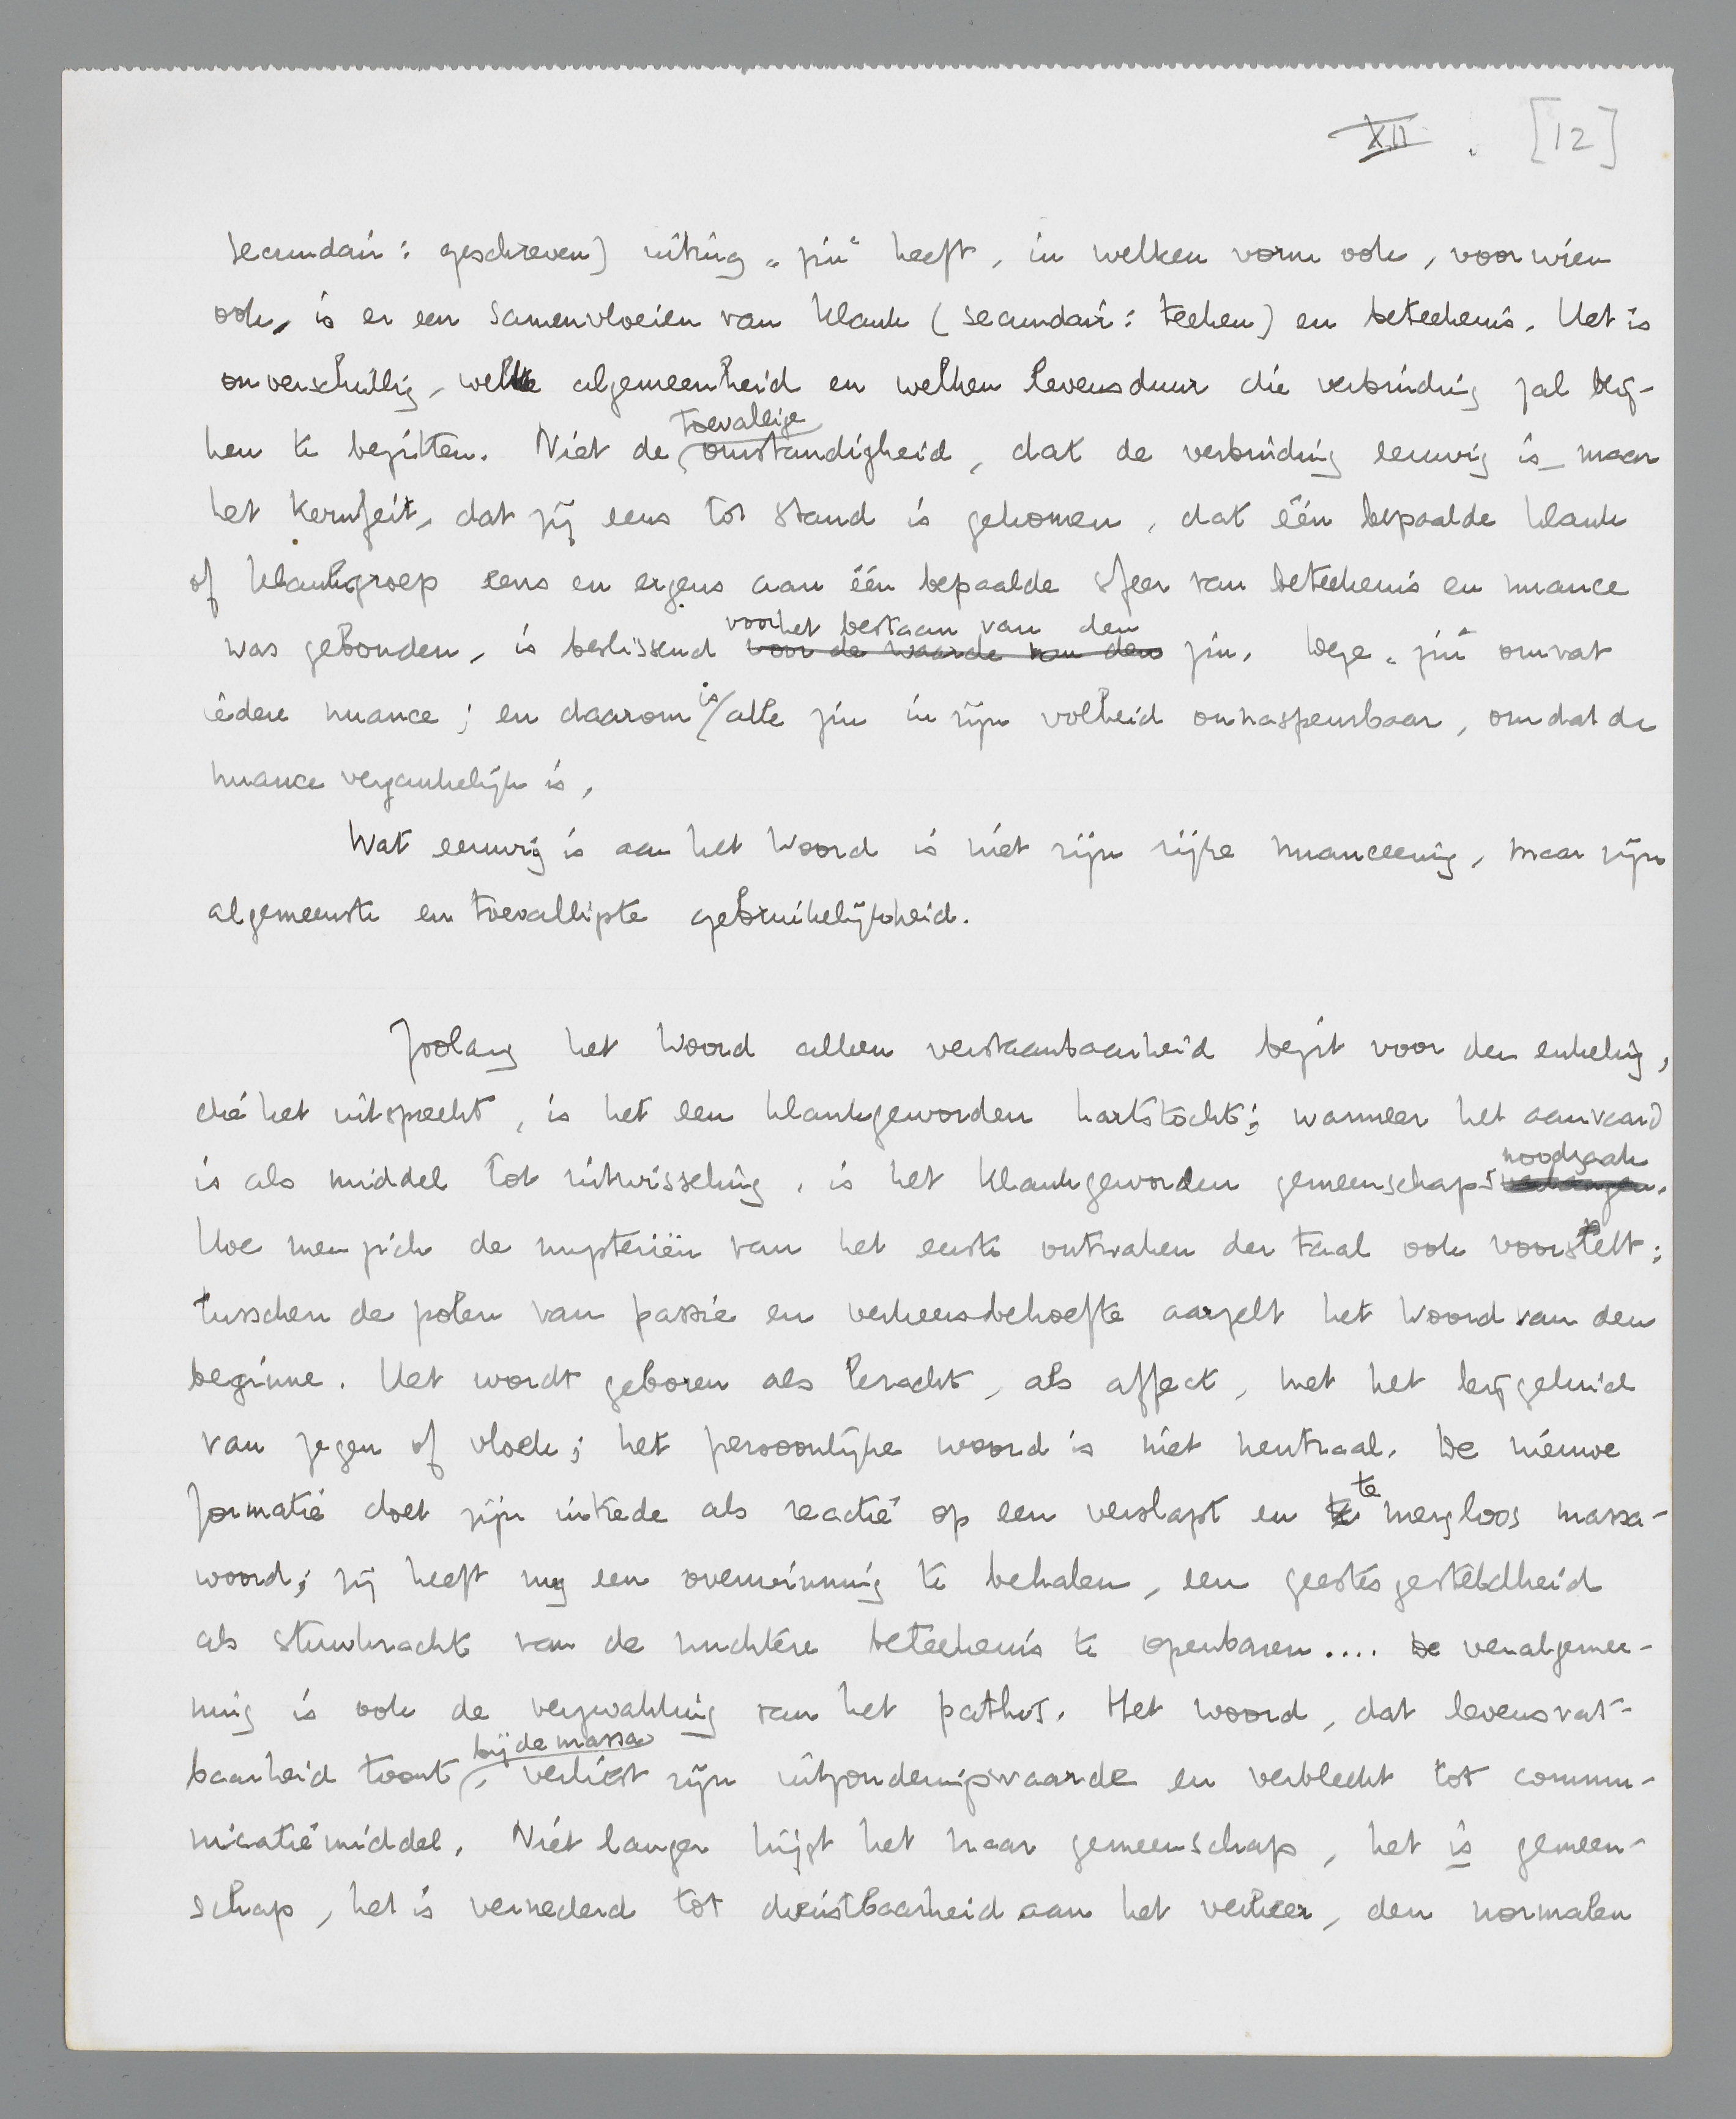 XII . [12]
secundair: geschreven) uiting „zin" heeft, in welken vorm ook, voor wien
ook, is er een samenvloeien van klank (secundair: teeken) en beteekenis. Het is
onverschillig, welke algemeenheid en welken levensduur die verbinding zal blij-
ken te bezitten. Niet de toevallige omstandigheid, dat de verbinding eeuwig is, maar
het kernfeit, dat zij eens tot stand is gekomen, dat één bepaalde klank
of klankgroep eens en ergens aan één bepaalde sfeer van beteekenis en nuance
was gebonden, is beslissend voor de waarde van den voor het bestaan van den zin. Deze „zin" omvat
iedere nuance; en daarom is alle zin in zijn volheid onnaspeurbaar, omdat de
nuance vergankelijk is.
Wat eeuwig is aan het Woord is niet zijn rijke nuanceering, maar zijn
algemeenste en toevalligste gebruikelijkheid.
Zoolang het Woord alleen verstaanbaarheid bezit voor den enkeling,
die het uitspreekt, is het een klankgeworden hartstocht; wanneer het aanvaard
is als middel tot uitwisseling, is het klankgeworden gemeenschapsnoodzaak.
Hoe men zich de mysteriën van het eerste ontwaken der taal ook voorstelt:
tusschen de polen van passie en verkeersbehoefte aarzelt het Woord van den
beginne. Het wordt geboren als kracht, als affect, met het bijgeluid
van zegen of vloek; het persoonlijke woord is niet neutraal. De nieuwe
formatie doet zijn intrede als reactie op een verslapt en te mergloos massa-
woord; zij heeft nog een overwinning te behalen, een geestesgesteldheid
als stuwkracht van de nuchtere beteekenis te openbaren.... De veralgemee-
ning is ook de verzwakking van het pathos. Het woord, dat levensvat-
baarheid toont bij de massa, verliest zijn uitzonderingswaarde en verbleekt tot commu-
nicatiemiddel. Niet langer hijgt het naar gemeenschap, het is gemeen-
schap, het is vernederd tot dienstbaarheid aan het verkeer, den normalen